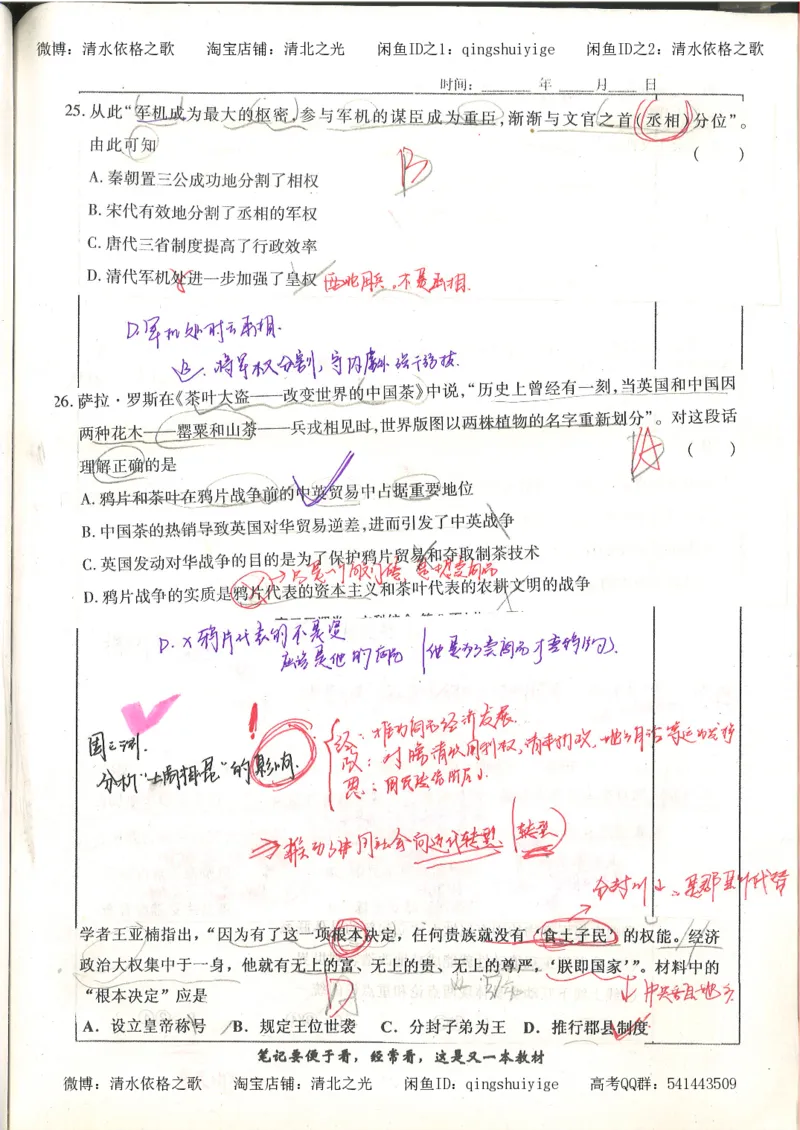 微博：清水依格之歌 淘宝店铺：清北之光 闲鱼ID之1：qingshuiyige 闲鱼ID之2：清水依格之歌
时间：____年____月____日
25. 从此“军机成为最大的枢密，参与军机的谋臣成为重臣，渐渐与文官之首（丞相）分位”。
由此可知 （ ）
B
A. 秦朝置三公成功地分割了相权
B. 宋代有效地分割了丞相的军权
C. 唐代三省制度提高了行政效率
D. 清代军机处进一步加强了皇权 西北用兵，不是丞相.
D. 军机处时无丞相.
将军权分割，守内虚外 强干弱枝.
26. 萨拉·罗斯在《茶叶大盗——改变世界的中国茶》中说，“历史上曾经有一刻，当英国和中国因
两种花木——罂粟和山茶——兵戎相见时，世界版图以两株植物的名字重新划分”。对这段话
理解正确的是 （ ）
A
A. 鸦片和茶叶在鸦片战争前的中英贸易中占据重要地位
B. 中国茶的热销导致英国对华贸易逆差，进而引发了中英战争
C. 英国发动对华战争的目的是为了保护鸦片贸易和夺取制茶技术
D. 鸦片战争的实质是鸦片代表的资本主义和茶叶代表的农耕文明的战争
D. × 鸦片代表的不是资
应该是他的商品
国三测.
分析“士商相混”的影响.
经：推动商品经济发展.
政：
思：
⇒ 推动了讲用社会向近代转型 （转型）
学者王亚楠指出，“因为有了这一项根本决定，任何贵族就没有‘食土子民’的权能。经济
政治大权集中于一身，他就有无上的富、无上的贵、无上的尊严，‘朕即国家’”。材料中的
“根本决定”应是
D
A．设立皇帝称号 B．规定王位世袭 C．分封子弟为王 D．推行郡县制度
笔记要便于看，经常看，这是又一本教材
微博：清水依格之歌 淘宝店铺：清北之光 闲鱼ID：qingshuiyige 高考QQ群：541443509